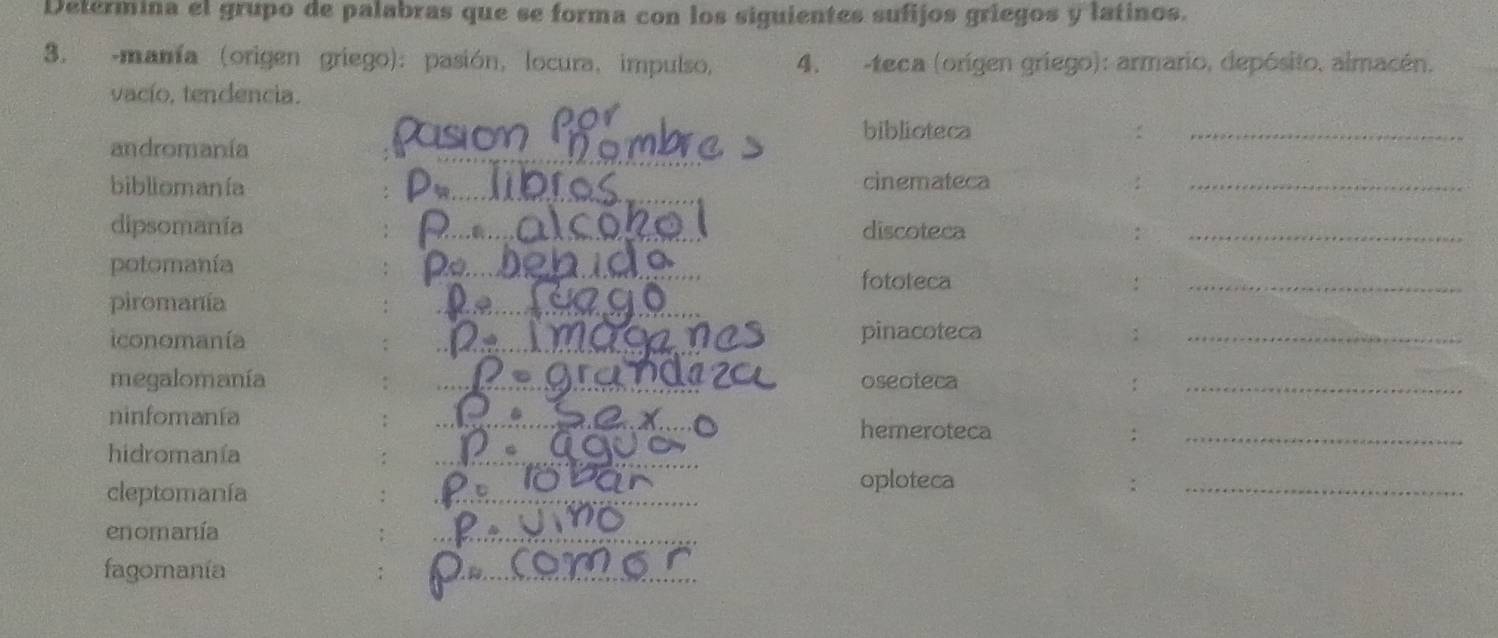 Determina el grupo de palabras que se forma con los siguientes sufijos griegos y latinos.
3. -manía (origen griego): pasión, locura, impulso,
vacío, tendencia.
andromanía : pasion por hombres
bibliomanía : p. libros
dipsomanía : p. alcohol
potomanía : p. bebida
piromanía : p. fuego
iconomanía : p. imagenes
megalomanía : p. grandeza
ninfomanía : p. sexo
hidromanía : p. agua
cleptomanía : p. robar
enomanía : p. vino
fagomanía : p. comer
4. -teca (origen griego): armario, depósito, almacén.
biblioteca :
cinemateca :
discoteca :
fototeca :
pinacoteca :
oseoteca :
hemeroteca :
oploteca :